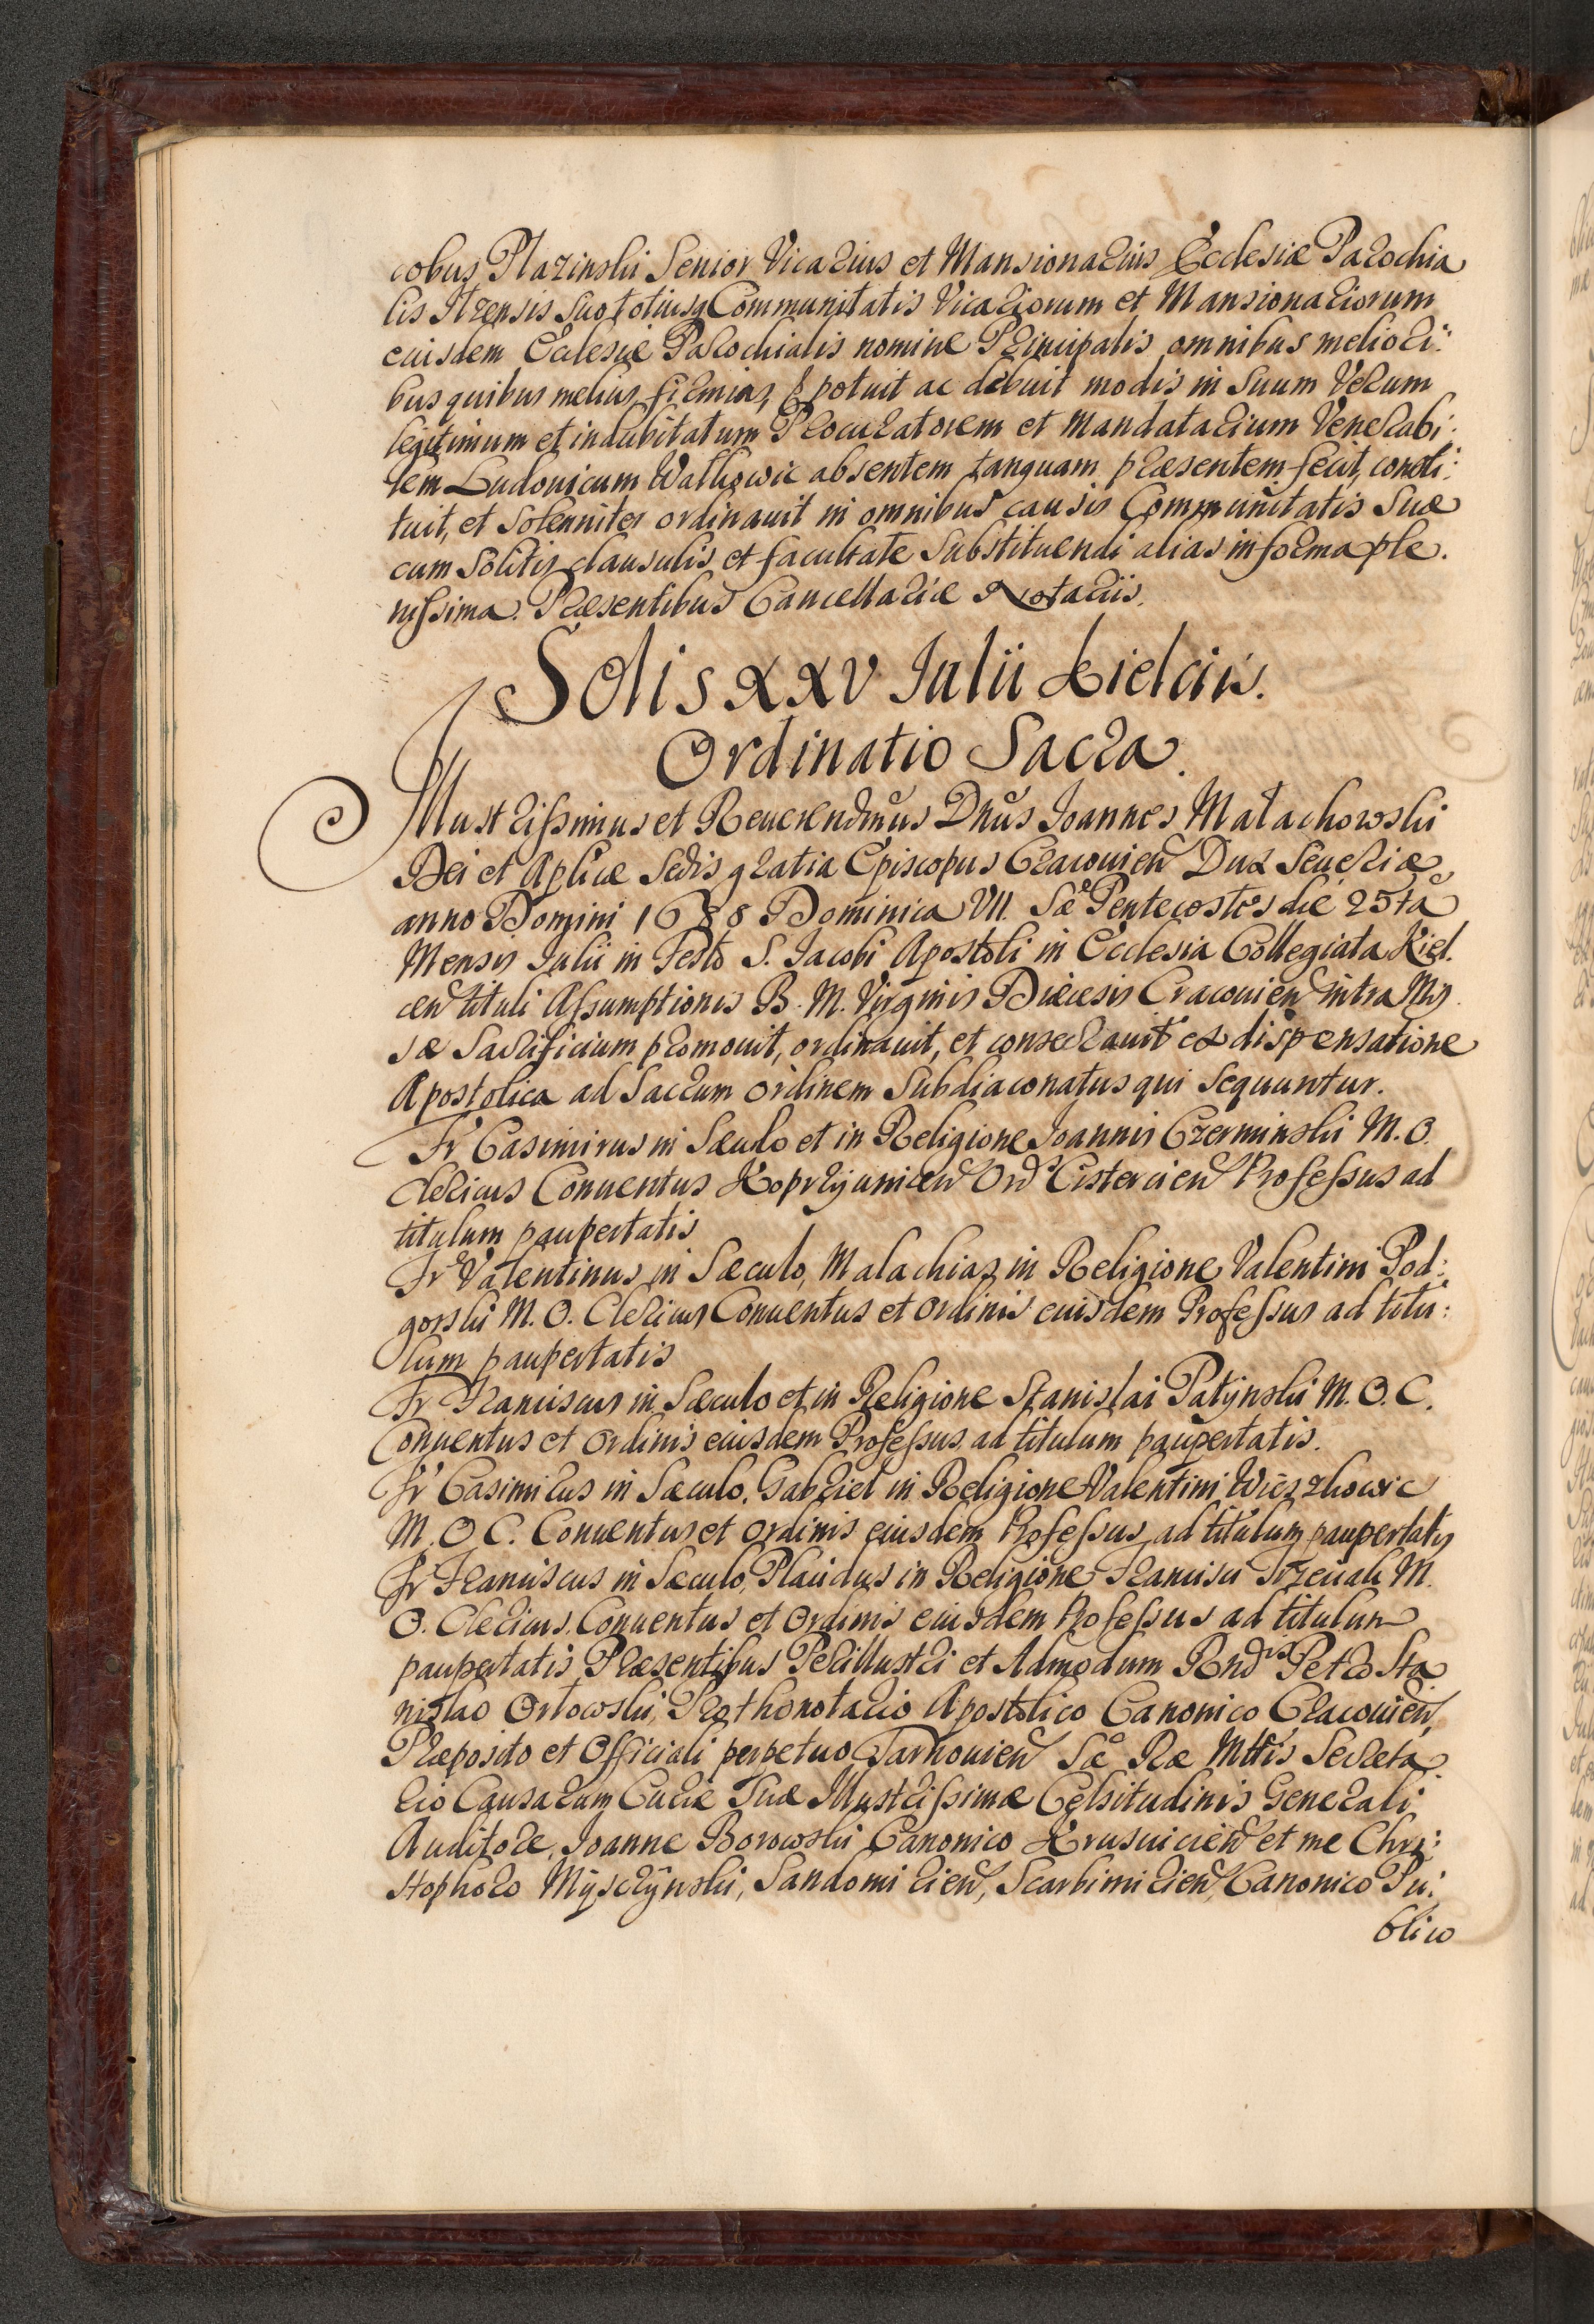 cobus Plazinski Senior Vicarius et Mansionarius Ecclesiæ Parochia
lis Ilzensis suo totiusq Communitatis Vicariorum et Mansionariorum
euisdem Ecclesiæ Parochialis nomine Principalis omnibus meliori:
bus quibus melius, firmius, potuit ac debuit modis in suum Verum
legitimum et indubitatum Procuratorem et Mandatarium Venerabi:
lem Ludouicum Walkowic absentem tanquam præsentem fecit, consti:
tuit, et solenniter ordinauit in omnibus causis Communitatis suæ
cum solitis clausulis et facultate substituendi alias in forma ple.
nissima. Præsentibus Cancellariæ Notariis.
Solis XXV Iulii Kielciis.
Ordinatio Sacra.
Illustrissimus et Reuerendmus Dnus Ioannes Małachowski
Dei et Aplicæ Sedis gratia Episcopus Cracouien Dux Seueriæ
anno Domini 1688 Dominica VII. Pentecostes die 25ta
Mensis Iulii in Festo S. Iacobi Apostoli in Ecclesia Collegiata Kiel.
cen tituli Assumptionis B. M. Virginis Diæcesis Cracouien intra Mis
sæ Sacrificium promouit, ordinauit, et consecrauit ex dispensatione
Apostolica ad Sacrum ordinem Subdiaconatus qui sequuntur.
Fr Casimirus in Sæculo et in Religione Ioannis Czerminski M. O.
Clericus Conuentus Koprzyunicen Ord Cistercien Professus ad
titulum paupertatis
Fr Valentinus in Sæculo, Malachias in Religione Valentini Pod:
gorski M. O. Clericus Conuentus et Ordinis euisdem Professus ad titu:
lum paupertatis
Fr Franciscus in Sæculo et in Religione Stanislai Patynski M. O. C.
Conuentus et Ordinis eiusdem Professus ad titulum paupertatis.
Fr Casimirus in Sæculo, Gabriel in Religione Valentini Wieszkowic
M. O C. Conuentus et Ordinis eiusdem Professus ad titulum paupertatis
Fr Franciscus in Sæculo, Placidus in Religione, Francisci M.
O. Clericus. Conuentus et Ordinis euisdem Professus ad titulum
paupertatis Præsentibus Perillustri et Admodum Rnd Petro Sta
nislao Orłowski, Prothonotario Apostolico Canonico Cracouien,
Præposito et Officiali perpetuo Tarnouien Sæ Ræ Mttis Secreta
rio Causarum Curiæ Suæ Illustrissimæ Celsitudinis Generali
Auditore, Ioanne Borowski Canonico Krusuicien et me Chri:
stophoro Mysczynski, Sandomirien, Scarbimirien, Canonico Pu:
blico